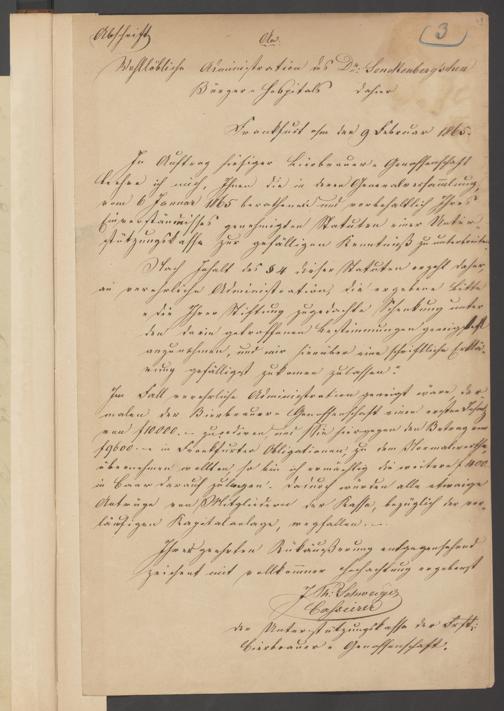 Abschrift
3
An
Wohllöbliche Administration des Dr: Senckenberg'schen
Bürger-Hospitals dahier
Frankfurt a/m den 9 Februar 1865.
Im Auftrag hiesiger Bierbrauer-Genossenschaft
beehre ich mich, Ihnen die in deren Generalversammlung
vom 6 Januar 1865 berathenen und vorbehaltlich Ihres
Einverständnisses genehmigten Statuten einer Unter-
stützungskasse zur gefälligen Kenntniß zu unterbreiten
Nach Inhalt des §4 dieser Statuten ergeht daher
an verehrliche Administration, die ergebene Bitte
"die Ihrer Stiftung zugedachte Schenkung unter
den darin getroffenen Bestimmungen geneigtest
anzunehmen, und mir hierüber eine schriftliche Erklä-
rung gefälligst zukommen zulassen."
Im Fall verehrliche Administration geneigt wäre, der-
malen der Bierbrauer Genossenschaft einen ersten
von f10000.– zu cediren und Sie hiergegen den Betrag von
f9600.– in Frankfurter Obligationen, zu dem Nominalwerthe
übernehmen wollten, so bin ich ermächtig die weitere f400.
in Baar darauf zulegen. Dadurch würden alle etwaige
Anträge von Mitgliedern der Kasse, bezüglich der vor-
läufigen Kapitalanlage, wegfallen.
Ihrer geehrten Rückäußerung entgegensehend
zeichnet mit vollkommner Hochachtung ergebenst
J. Th: Schweiger
Cassierer
der Unterstützungskasse der Frkft:
Bierbrauer-Genossenschaft.